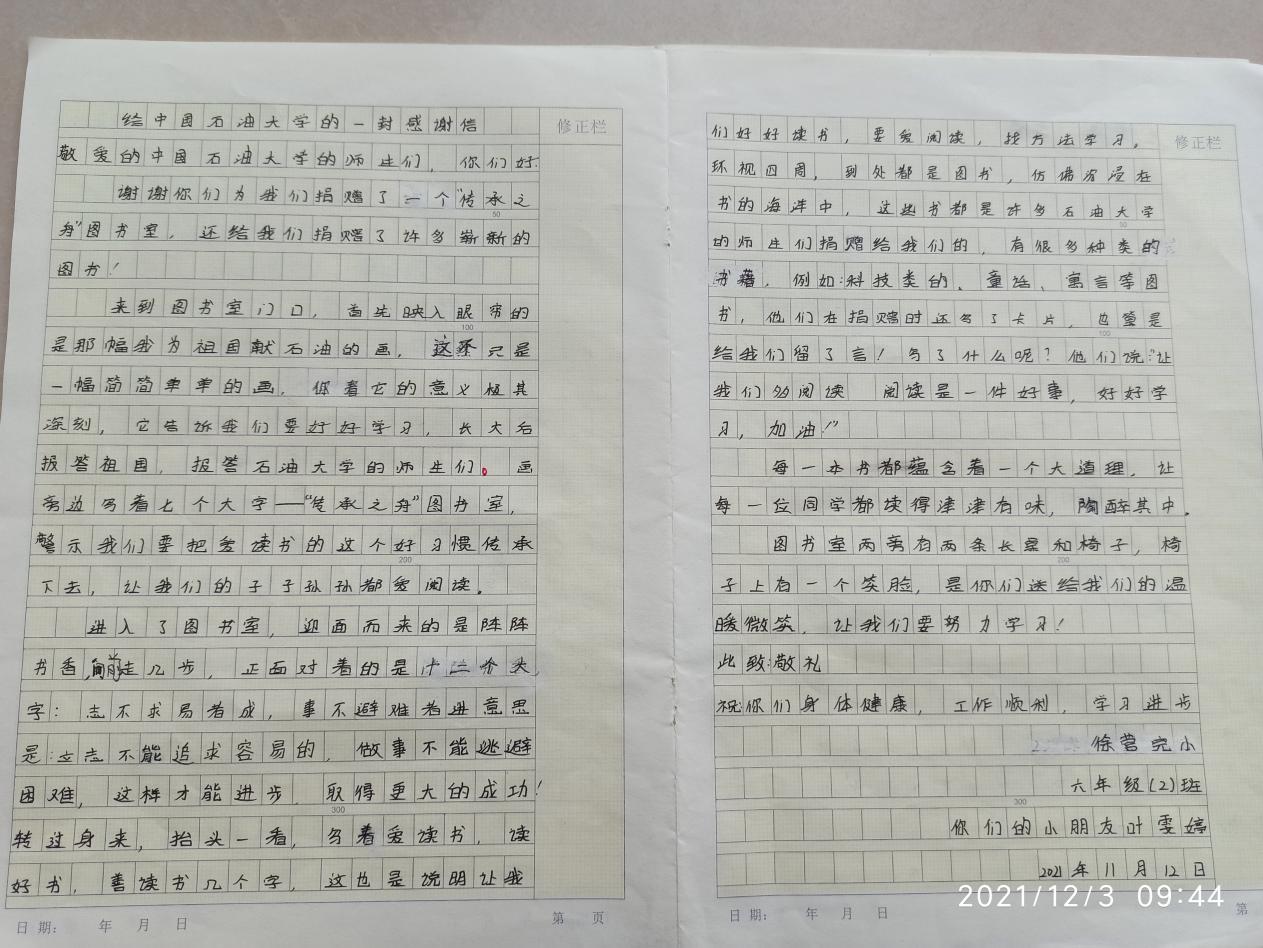 给中国石油大学的一封感谢信
修正栏
敬爱的中国石油大学的师生们，你们好.
谢谢你们为我们捐赠了一个“传承之
50
舟”图书室，还给我们捐赠了许多崭新的
图书！
来到图书室门口，首先映入眼帘的
100
是那幅我为祖国献石油的画，这不只是
一幅简简单单的画，你看它的意义极其
深刻，它告诉我们要好好学习，长大后
报答祖国，报答石油大学的师生们。画
旁边写着七个大字——“传承之舟”图书室，
警示我们要把爱读书的这个好习惯传承
200
下去，让我们的子子孙孙都爱阅读。
进入了图书室，迎面而来的是阵阵
书香，向前走几步，正面对着的是十二个大
字：志不求易者成，事不避难者进意思
是：立志不能追求容易的，做事不能逃避
困难，这样才能进步，取得更大的成功！
300
转过身来，抬头一看，写着爱读书，读
好书，善读书几个字，这也是说明让我
日期： 年 月 日
第 页
们好好读书，要爱阅读，找方法学习。
修正栏
环视四周，到处都是图书，仿佛沉浸在
书的海洋中，这些书都是许多石油大学
50
的师生们捐赠给我们的，有很多种类的
书藉，例如：科技类的、童话、寓言等图
书，他们在捐赠时还写了卡片，也算是
100
给我们留了言！写了什么呢？他们说：“让
我们多阅读 阅读是一件好事，好好学
习，加油！”
每一本书都蕴含着一个大道理，让
每一位同学都读得津津有味，陶醉其中。
图书室两旁有两条长桌和椅子，椅
200
子上有一个笑脸，是你们送给我们的温
暖微笑，让我们要努力学习！
此致：敬礼
祝你们身体健康，工作顺利，学习进步
徐营完小
六年级(2)班
300
你们的小朋友叶雯婷
2021年11月12日
2021/12/3 09:44
日期： 年 月 日
第